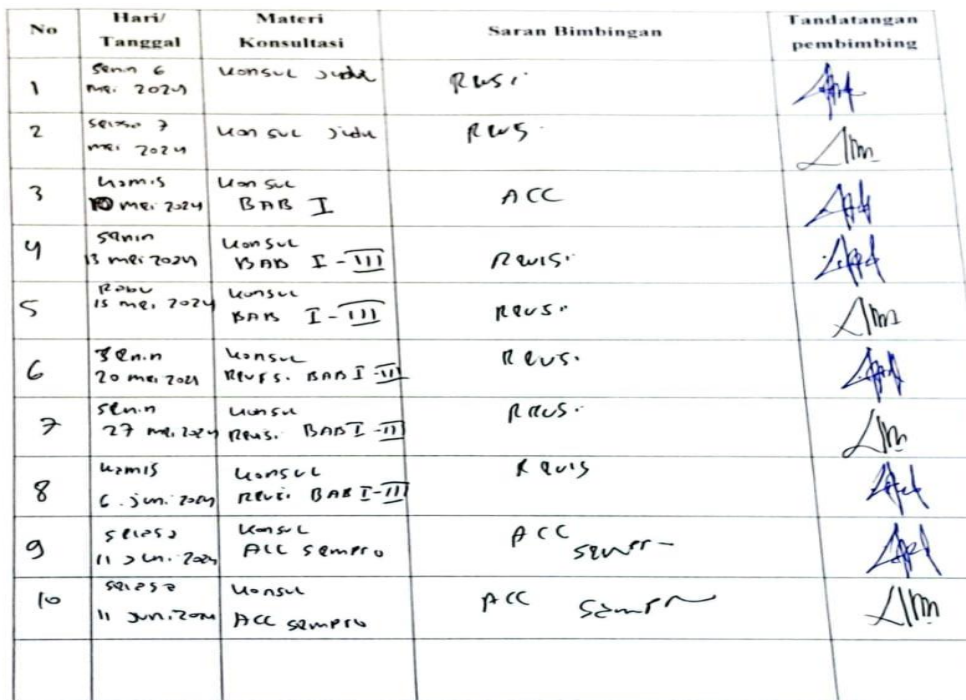 No Hari/ Tanggal Materi Konsultasi Saran Bimbingan Tandatangan pembimbing
1 Senin 6 mei 2024 Konsul Judul Revisi
2 Selasa 7 mei 2024 Konsul Judul Revisi
3 Kamis mei 2024 Konsul BAB I ACC
4 Senin 13 mei 2024 Konsul BAB I - III Revisi
5 Rabu 15 mei 2024 Konsul BAB I - III Revisi
6 Senin 20 mei 2024 Konsul Revisi BAB I - III Revisi
7 Senin 27 mei 2024 Konsul Revisi BAB I - III Revisi
8 Kamis 6 juni 2024 Konsul Revisi BAB I - III Revisi
9 Selasa 11 Juni 2024 Konsul ACC sempro ACC sempro
10 Selasa 11 Juni 2024 Konsul ACC sempro ACC sempro